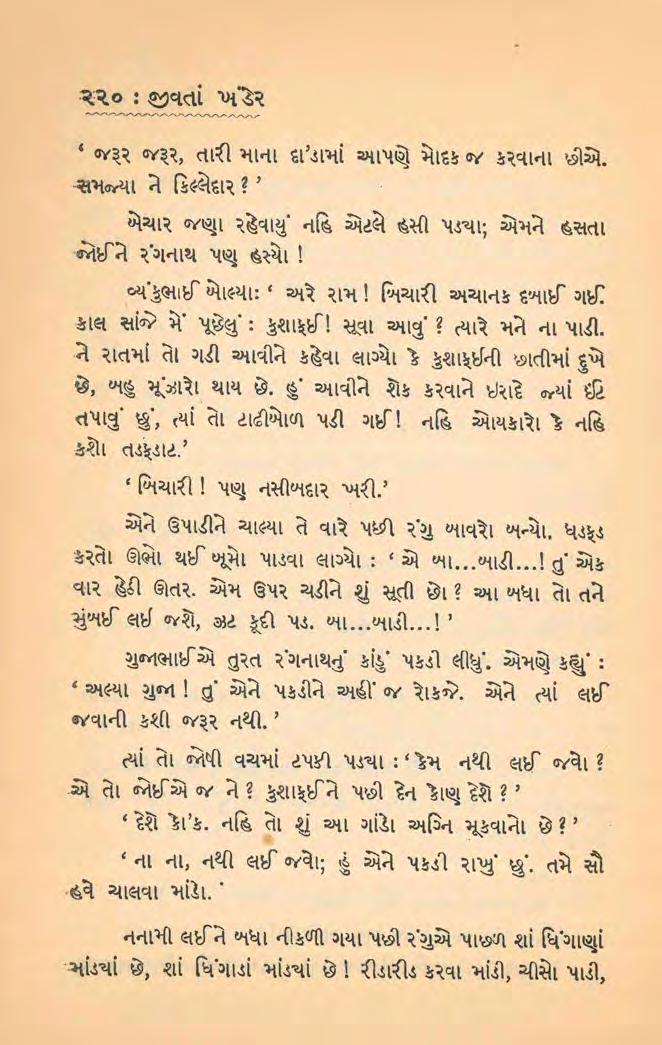 ૨૨૦ : જીવતાં ખંડેર
‘ જરૂર જરૂર, તારી માના દા'ડામાં આપણે મોદક જ કરવાના છીએ.
સમજ્યા ને કિલ્લેદાર ? ’
બેચાર જણા રહેવાયું નહિ એટલે હસી પડ્યા; એમને હસતા
જોઈને રંગનાથ પણ હસ્યો !
વ્યંકુભાઈ બોલ્યાઃ ‘ અરે રામ ! બિચારી અચાનક દબાઈ ગઈ.
કાલ સાંજે મેં પૂછેલું : કુશાફઈ! સૂવા આવું ? ત્યારે મને ના પાડી.
ને રાતમાં તો ગડી આવીને કહેવા લાગ્યો કે કુશાફઈની છાતીમાં દુખે
છે, બહુ મૂંઝારો થાય છે. હું આવીને શેક કરવાને ઇરાદે જ્યાં ઇંટ
તપાવું છું, ત્યાં તો ટાઢીબોળ પડી ગઈ! નહિ ઓયકારો કે નહિ
કશો તડફડાટ.’
‘ બિચારી ! પણ નસીબદાર ખરી.’
એને ઉપાડીને ચાલ્યા તે વારે પછી રંગુ બાવરો બન્યો. ધડફડ
કરતો ઊભો થઈ બૂમો પાડવા લાગ્યો : ‘ એ બા...બાડી...! તું એક
વાર હેઠી ઊતર. એમ ઉપર ચડીને શું સૂતી છો ? આ બધા તો તને
મુંબઈ લઇ જશે, ઝટ કૂદી પડ. બા...બાડી...! ’
ગુજાભાઈએ તુરત રંગનાથનું કાંડું પકડી લીધું. એમણે કહ્યું :
‘ અલ્યા ગુજા ! તું એને પકડીને અહીં જ રોકજે. એને ત્યાં લઈ
જવાની કશી જરૂર નથી. ’
ત્યાં તો જોષી વચમાં ટપકી પડ્યા : ‘ કેમ નથી લઈ જવો ?
એ તો જોઈએ જ ને ? કુશાફઈને પછી દેન કોણ દેશે ? ’
‘ દેશે કો'ક. નહિ તો શું આ ગાંડો અગ્નિ મૂકવાનો છે ? ’
‘ ના ના, નથી લઈ જવો; હું એને પકડી રાખું છું. તમે સૌ
હવે ચાલવા માંડો. ’
નનામી લઈને બધા નીકળી ગયા પછી રંગુએ પાછળ શાં ધિંગાણાં
માંડ્યાં છે, શાં ધિંગાડાં માંડ્યાં છે ! રીડારીડ કરવા માંડી, ચીસો પાડી,